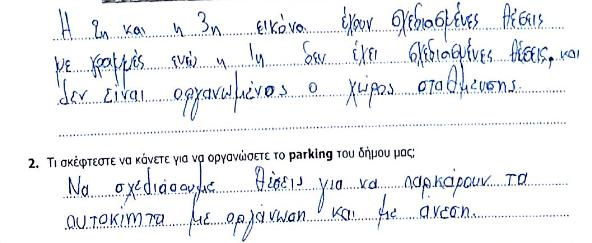 Η 2η και η 3η εικόνα έχουν σχεδιασμένες θέσεις
με γραμμές ενώ η 1η δεν έχει σχεδιασμένες θέσεις, και
δεν είναι οργανωμένος ο χώρος στάθμευσης.
2. Τι σκέφτεστε να κάνετε για να οργανώσετε το parking του δήμου μας;
Να σχεδιάσουμε θέσεις για να παρκάρουν τα
αυτοκίνητα με οργάνωση και με άνεση.